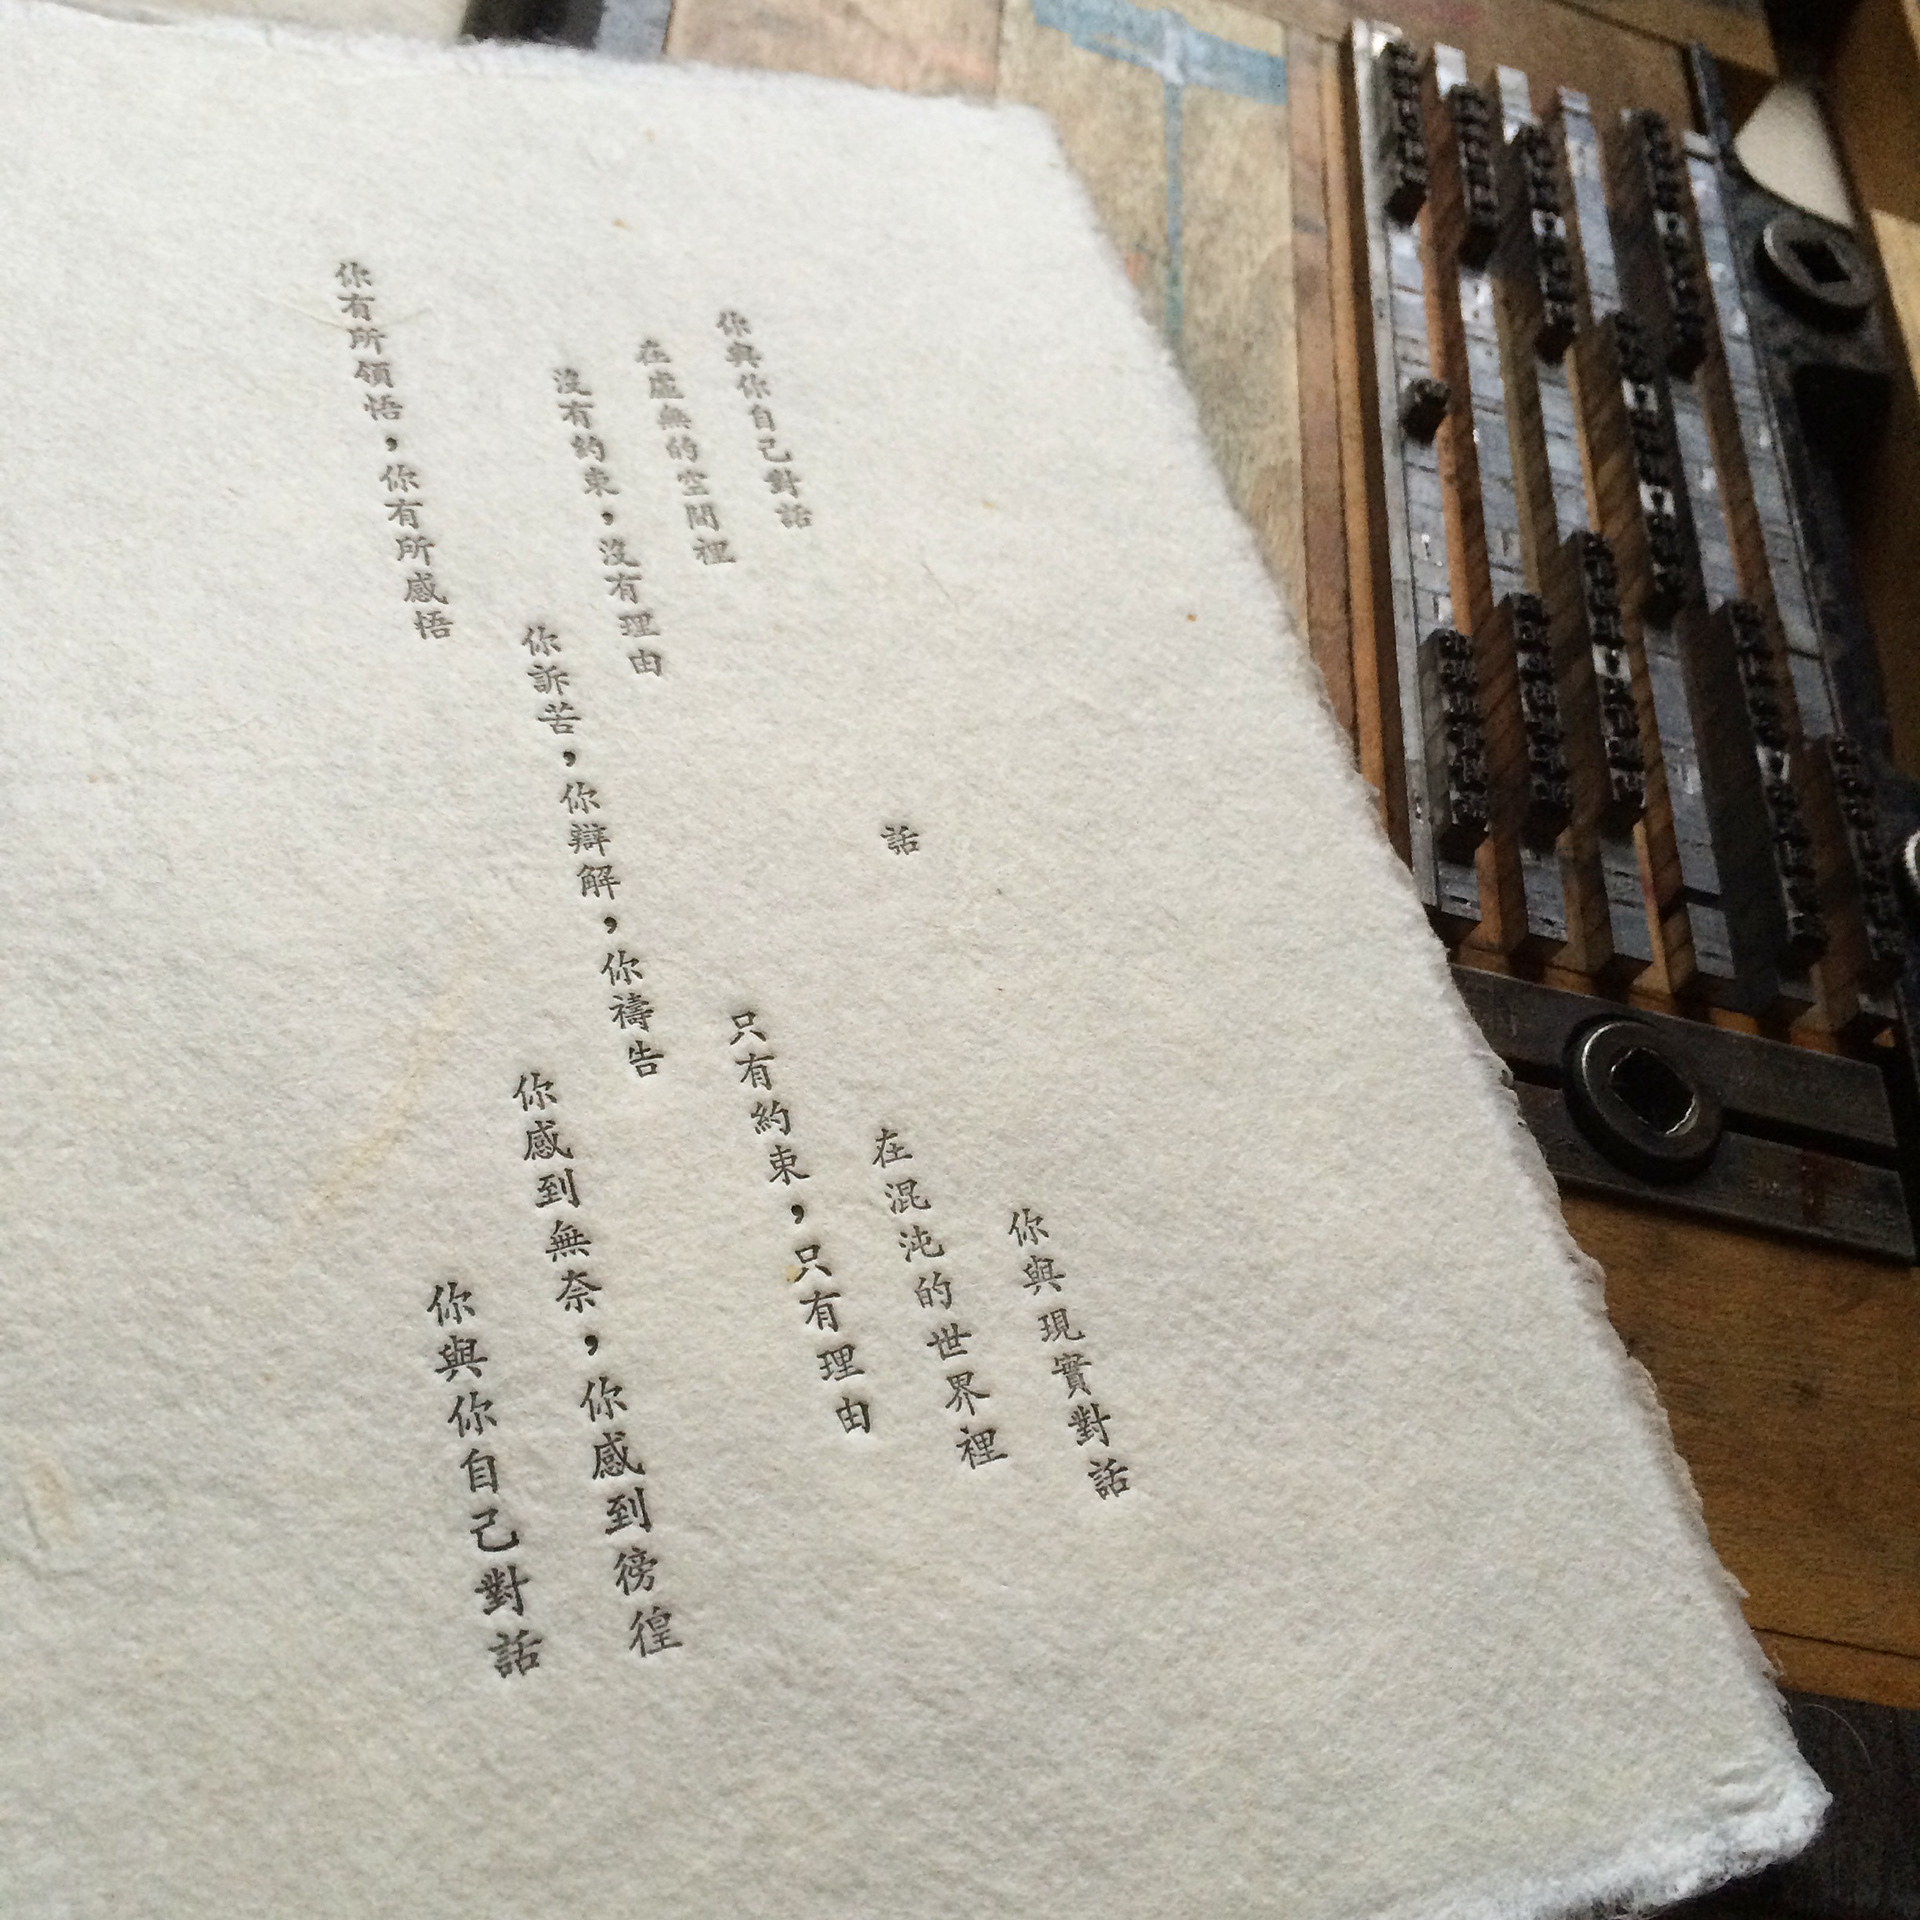 話
你與你自己對話
在虛無的空間裡
沒有約束，沒有理由
你訴苦，你辯解，你禱告
你有所領悟，你有所感悟
你與現實對話
在混沌的世界裡
只有約束，只有理由
你感到無奈，你感到徬徨
你與你自己對話